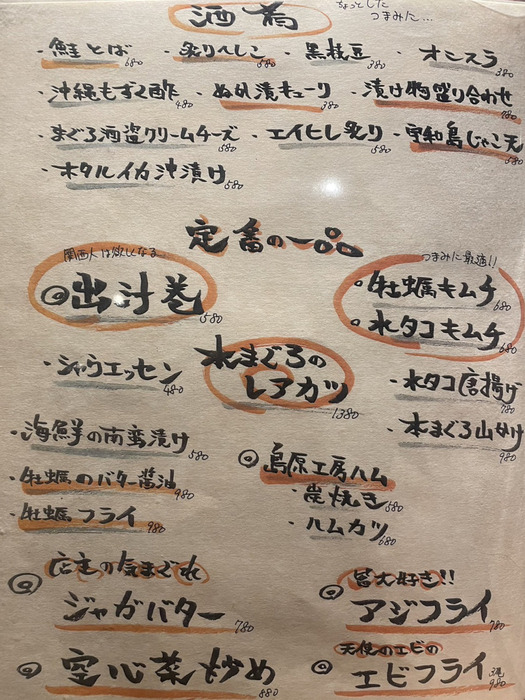 酒肴 ちょっとした つまみに...
・鮭とば 680 ・炙りへしこ 580 ・黒枝豆 380 ・オニスラ 380
・沖縄もずく酢 480 ・ぬか漬キューリ 380 ・漬け物盛り合わせ 780
・まぐろ酒盗クリームチーズ 580 ・エイヒレ炙り 580 ・宇和島じゃこ天 580
・ホタルイカ沖漬け 580
定番の一品
関西人は欲しくなる...
◎出汁巻 580
つまみに最適!!
・牡蠣キムチ 680
・水タコキムチ 680
・シャウエッセン 480
本まぐろの
レアカツ 1380
・水タコ唐揚げ 780
・本まぐろ山かけ 980
・海鮮の南蛮漬け 580
・牡蠣のバター醤油 980
・牡蠣フライ 980
◎島原工房ハム
・炭焼き 580
・ハムカツ 680
◎店主の気まぐれ
ジャガバター 780
◎皆大好き!!
アジフライ 780
◎空心菜炒め 880
◎天使のエビの
エビフライ 3尾 980